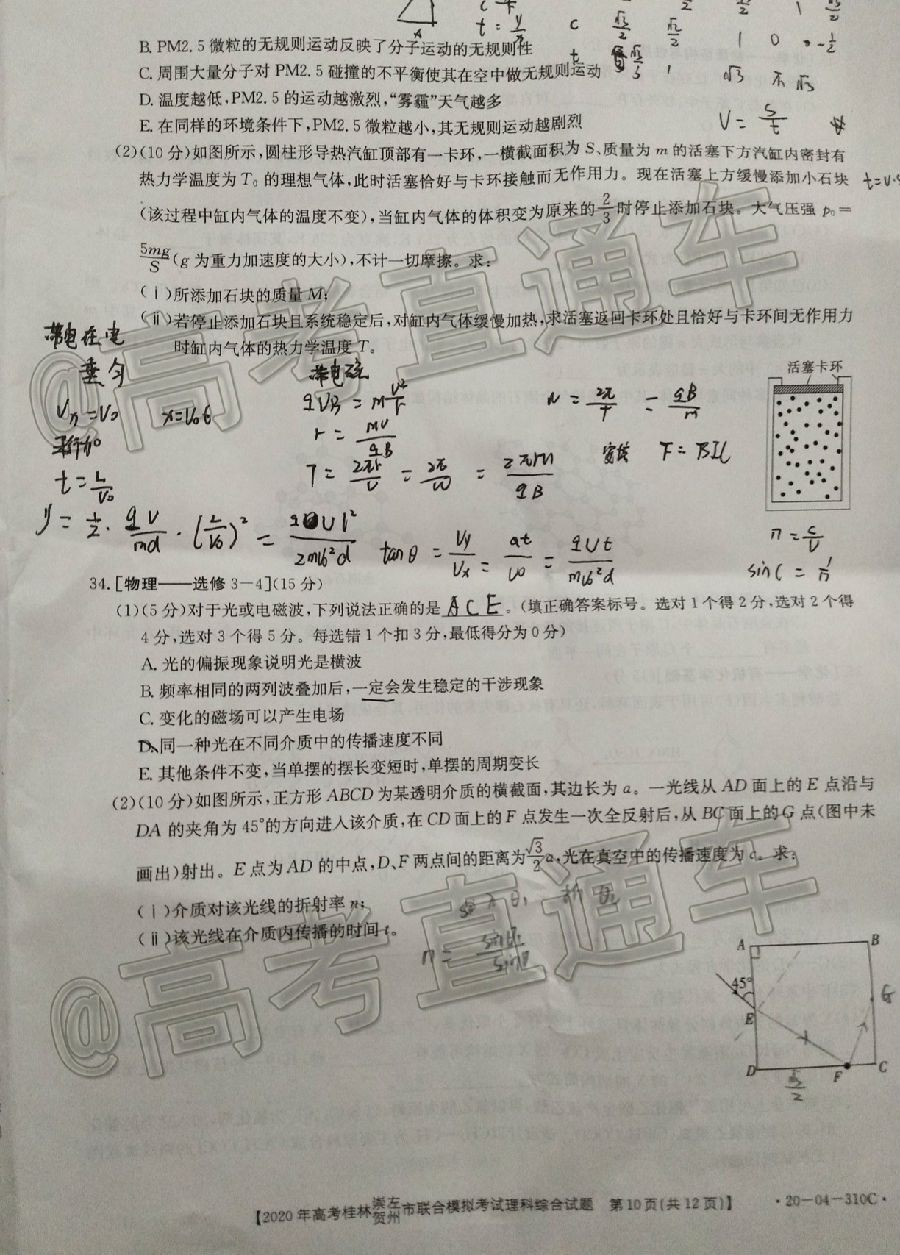 B. PM2.5 微粒的无规则运动反映了分子运动的无规则性
C. 周围大量分子对 PM2.5 碰撞的不平衡使其在空中做无规则运动
D. 温度越低,PM2.5 的运动越激烈,“雾霾”天气越多
E. 在同样的环境条件下,PM2.5 微粒越小,其无规则运动越剧烈
V = S/t
(2)(10 分)如图所示,圆柱形导热汽缸顶部有一卡环,一横截面积为 S、质量为 m 的活塞下方汽缸内密封有
热力学温度为 T₀ 的理想气体,此时活塞恰好与卡环接触而无作用力。现在活塞上方缓慢添加小石块
(该过程中缸内气体的温度不变),当缸内气体的体积变为原来的 2/3 时停止添加石块。大气压强 p₀=
5mg/S (g 为重力加速度的大小),不计一切摩擦。求:
(ⅰ)所添加石块的质量 M;
(ⅱ)若停止添加石块且系统稳定后,对缸内气体缓慢加热,求活塞返回卡环处且恰好与卡环间无作用力
时缸内气体的热力学温度 T。
活塞卡环
x=v₀t
t=L/v₀
r = mv/qB
T = 2πr/v = 2π/ω = 2πm/qB
F=BIL
n = c/v
sin C = 1/n
34. [物理——选修 3-4](15 分)
(1)(5 分)对于光或电磁波,下列说法正确的是 A C E 。(填正确答案标号。选对 1 个得 2 分,选对 2 个得
4 分,选对 3 个得 5 分。每选错 1 个扣 3 分,最低得分为 0 分)
A. 光的偏振现象说明光是横波
B. 频率相同的两列波叠加后,一定会发生稳定的干涉现象
C. 变化的磁场可以产生电场
D. 同一种光在不同介质中的传播速度不同
E. 其他条件不变,当单摆的摆长变短时,单摆的周期变长
(2)(10 分)如图所示,正方形 ABCD 为某透明介质的横截面,其边长为 a。一光线从 AD 面上的 E 点沿与
DA 的夹角为 45°的方向进入该介质,在 CD 面上的 F 点发生一次全反射后,从 BC 面上的 G 点(图中未
画出)射出。E 点为 AD 的中点,D、F 两点间的距离为 √3/2 a,光在真空中的传播速度为 c。求:
(ⅰ)介质对该光线的折射率 n;
(ⅱ)该光线在介质内传播的时间 t。
A
B
45°
G
E
D
F
C
【2020 年高考桂林崇左贺州市联合模拟考试理科综合试题 第 10 页(共 12 页)】
·20-04-310C·
@高考直通车
@高考直通车